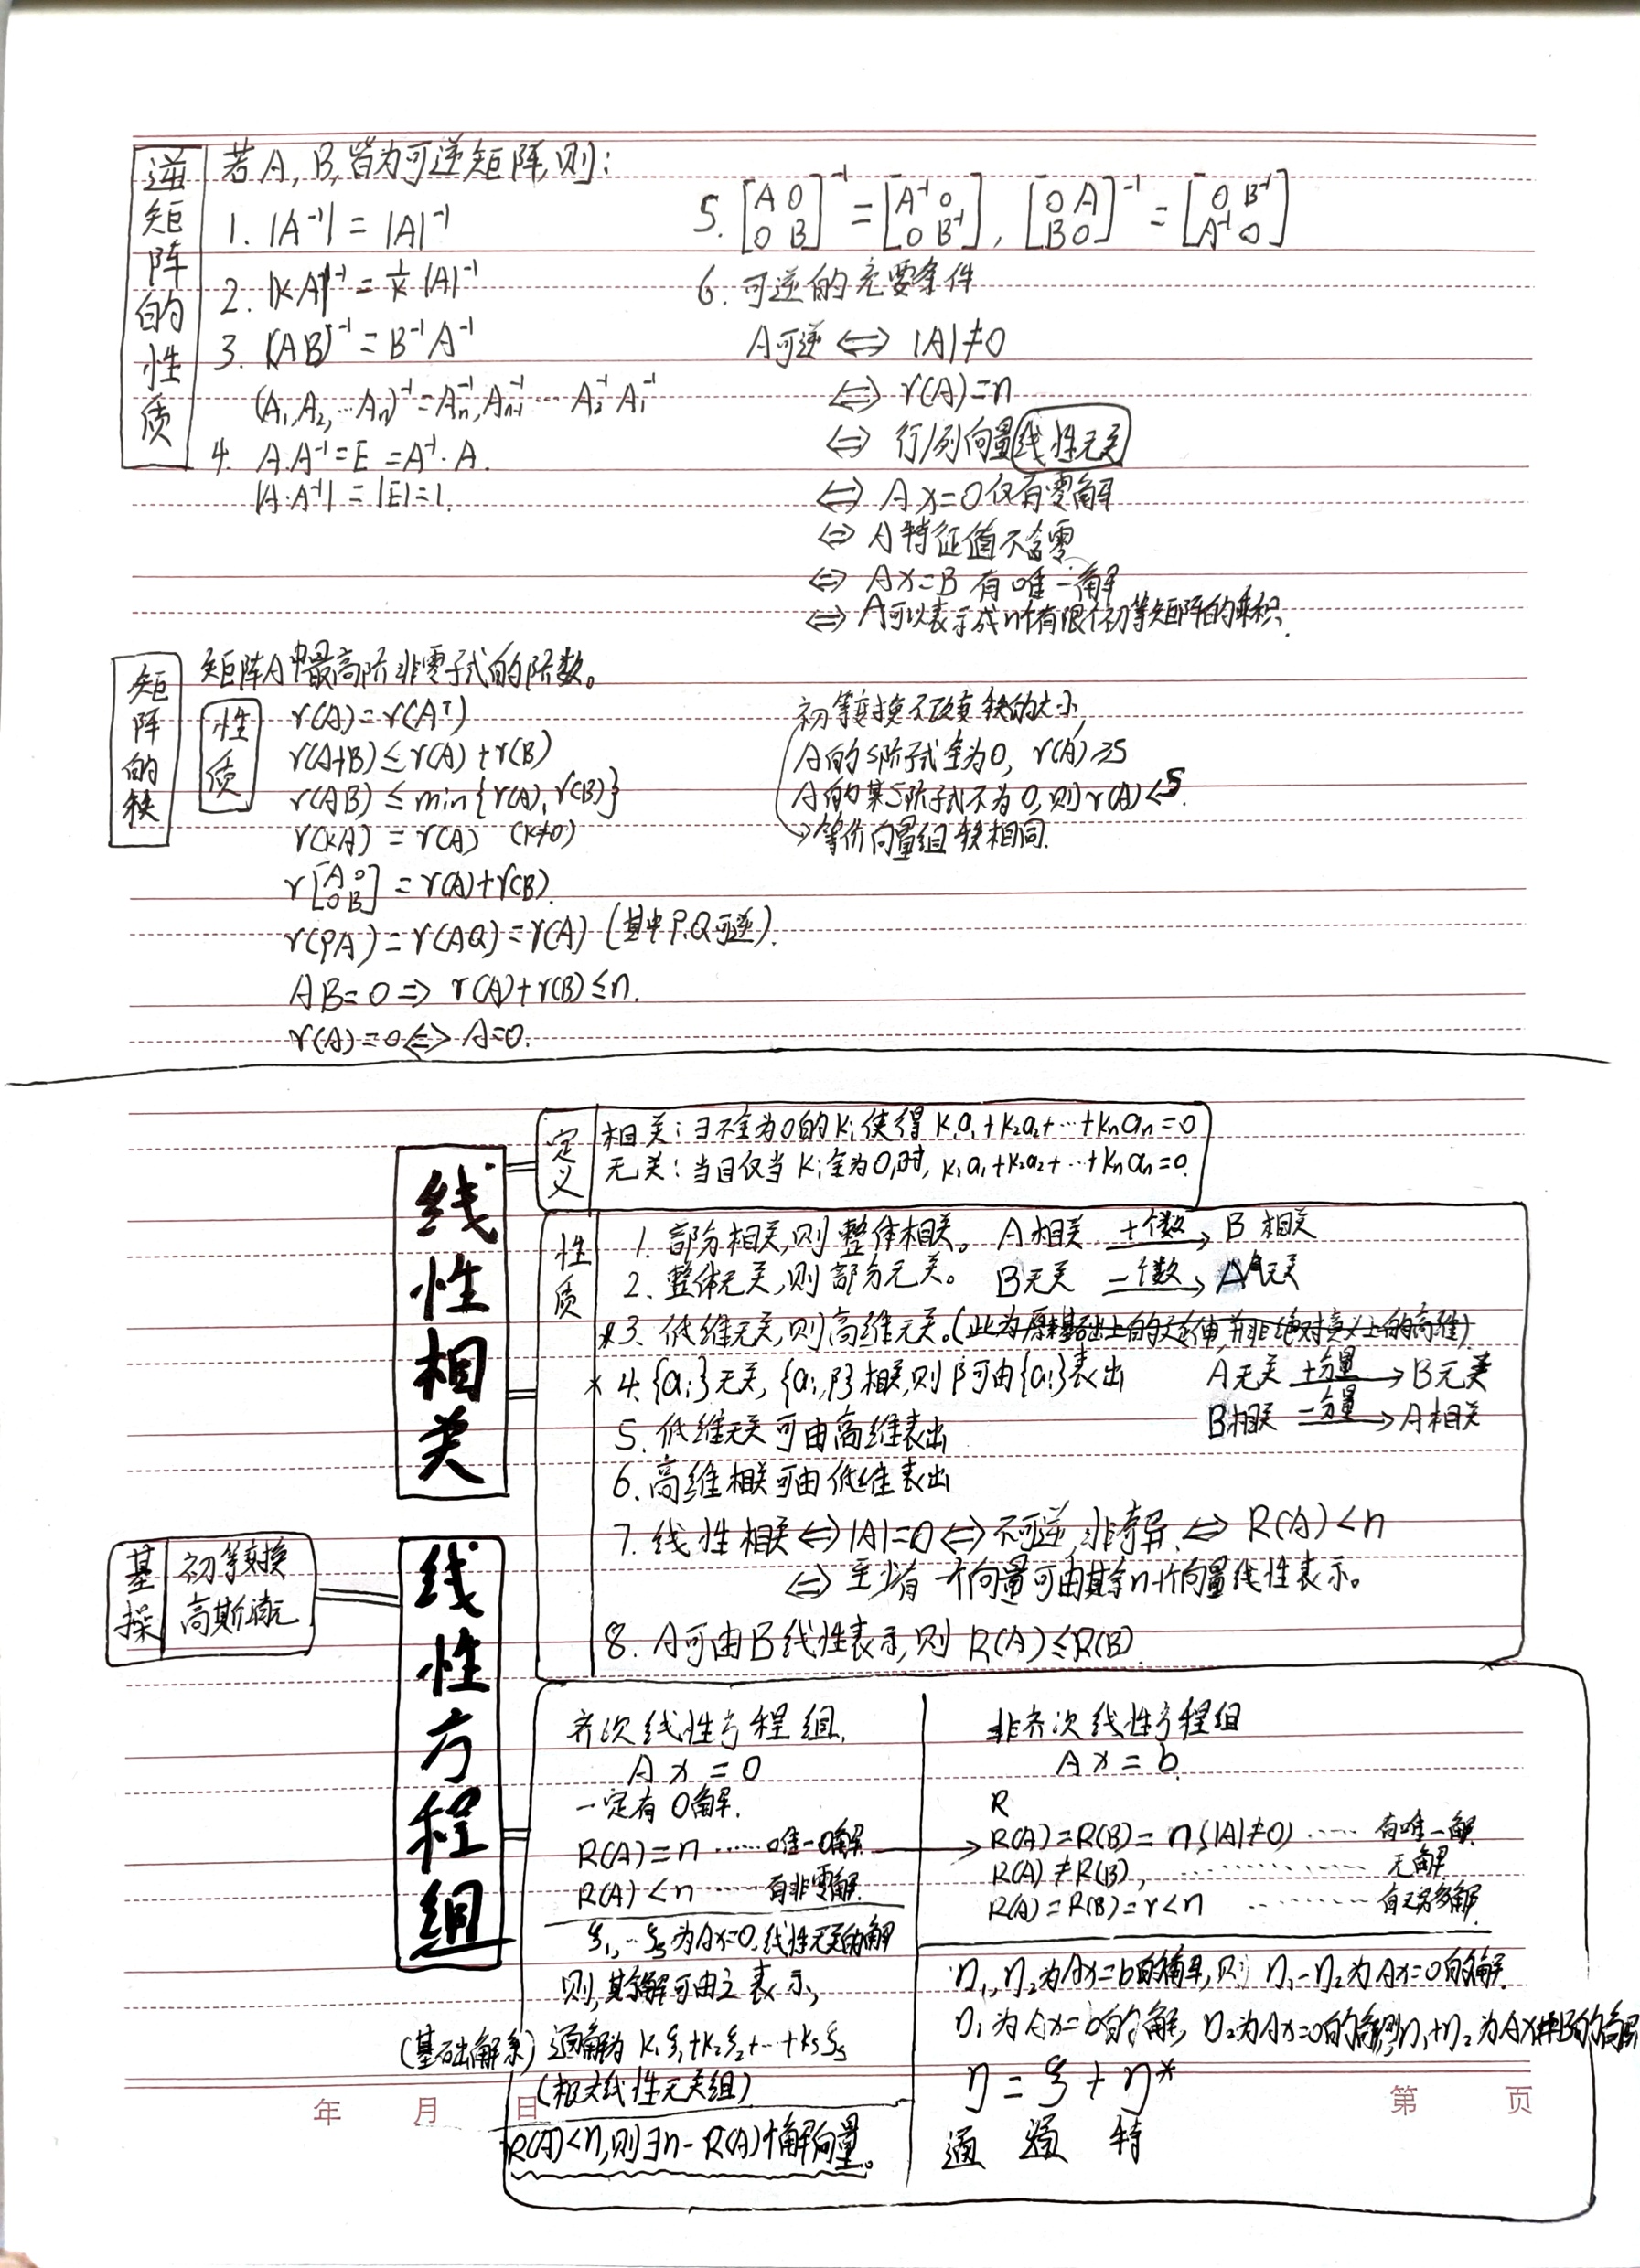 逆矩阵的性质
若A, B, 皆为可逆矩阵, 则:
1. |A⁻¹| = |A|⁻¹
2. |KA|⁻¹ = 1/K |A|⁻¹
3. (AB)⁻¹ = B⁻¹A⁻¹
(A₁,A₂,…Aₙ)⁻¹ = Aₙ⁻¹,Aₙ₋₁⁻¹ … A₂⁻¹ A₁⁻¹
4. A.A⁻¹ = E = A⁻¹·A.
|A·A⁻¹| = |E| = 1.
5. [A 0; 0 B]⁻¹ = [A⁻¹ 0; 0 B⁻¹], [0 A; B 0]⁻¹ = [0 B⁻¹; A⁻¹ 0]
6. 可逆的充要条件
A可逆 ⇔ |A|≠0
⇔ r(A)=n
⇔ 行/列向量线性无关
⇔ Ax=0仅有零解
⇔ A特征值不含零
⇔ Ax=B 有唯一解
⇔ A可以表示成n个有限个初等矩阵的乘积.
矩阵的秩
矩阵A中最高阶非零子式的阶数。
性质
r(A)=r(Aᵀ)
r(A+B)≤r(A)+r(B)
r(AB)≤min{r(A),r(B)}
r(kA)=r(A) (k≠0)
r[A 0; 0 B]=r(A)+r(B).
r(PA)=r(AQ)=r(A) (其中P,Q可逆).
AB=0⇒ r(A)+r(B)≤n.
r(A)=0⇔A=0.
初等变换不改变秩的大小,
A的S阶子式全为0, r(A)≥S
A的某S阶子式不为0,则r(A)<S.
→等价向量组秩相同.
线性相关
定义
相关: ∃不全为0的Kᵢ使得 K₁a₁+K₂a₂+…+Kₙaₙ=0
无关: 当且仅当Kᵢ全为0,时, K₁a₁+K₂a₂+…+Kₙaₙ=0.
性质
1. 部分相关,则整体相关。 A相关 +个数→ B相关
2. 整体无关,则部分无关。 B无关 -个数→ A无关
*3. 低维无关,则高维无关。(此为原基础上的延伸,并非绝对意义上的高维)
*4. {aᵢ}无关, {aᵢ,β}相关,则β可由{aᵢ}表出 A无关 +分量→ B无关
5. 低维无关可由高维表出 B相关 -分量→ A相关
6. 高维相关可由低维表出
7. 线性相关⇔|A|=0⇔不可逆,非奇异,⇔ R(A)<n
⇔ 至少有一个向量可由其余n-1个向量线性表示。
8. A可由B线性表示,则 R(A)≤R(B).
基操
初等变换
高斯消元
线性方程组
齐次线性方程组.
Ax=0
一定有0解.
R(A)=n ……唯一0解
R(A)<n ……有非零解.
ξ₁,…ξₛ为Ax=0,线性无关的解
则,其解可由之表示,
(基础解系) 通解为 K₁ξ₁+K₂ξ₂+…+Kₛξₛ
(极大线性无关组)
R(A)<n,则∃n-R(A)个解向量。
非齐次线性方程组
Ax=b.
R
R(A)=R(B)=n,(|A|≠0) …… 有唯一解
R(A)≠R(B), ………… 无解
R(A)=R(B)=r<n ………… 有无穷多解.
η₁,η₂为Ax=b的解,则 η₁-η₂为Ax=0的解.
η₁为Ax=b的解, η₂为Ax=0的解,则η₁+η₂为Ax=B的解
η = ξ + η*
通 通 特
年 月 日 第 页